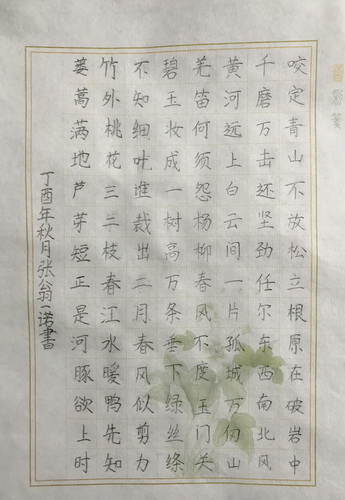 咬定青山不放松立根原在破岩中
千磨万击还坚劲任尔东西南北风
黄河远上白云间一片孤城万仞山
羌笛何须怨杨柳春风不度玉门关
碧玉妆成一树高万条垂下绿丝绦
不知细叶谁裁出二月春风似剪刀
竹外桃花三二枝春江水暖鸭先知
蒌蒿满地芦芽短正是河豚欲上时
丁酉年秋月张翁一诺書